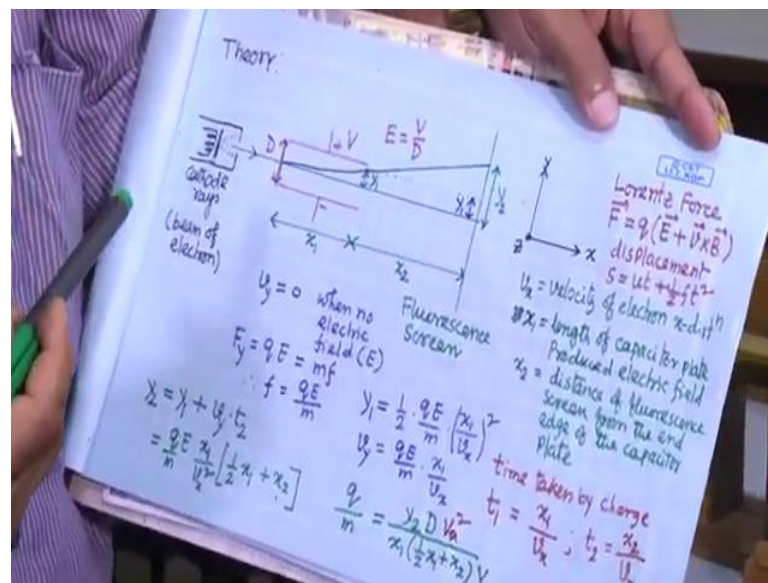 Theory:
D
+V
E = V/D
y₁
y₁
y₂
x₁
x₂
Cathode
rays
(beam of
electron)
Fluorescence
Screen
y
x
z
Lorentz Force
F⃗ = q(E⃗ + v⃗ x B⃗)
displacement
S = ut + ½ft²
vₓ = velocity of electron x-distⁿ
x₁ = length of capacitor plate
Produced electric field
x₂ = distance of fluorescence
screen from the end
edge of the capacitor
plate
v_y = 0 when no
electric
field (E)
F_y = qE = mf
∴ f = qE/m
y₂ = y₁ + v_y·t₂
= qE/m x₁/vₓ² [½x₁ + x₂]
y₁ = 1/2 · qE/m · (x₁/vₓ)²
v_y = qE/m · x₁/vₓ
q/m = y₂ D vₓ² / x₁(½x₁+x₂)V
time taken by charge
t₁ = x₁/vₓ ; t₂ = x₂/v